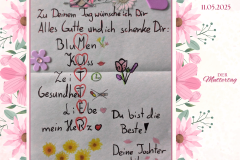 Zu Deinem Tag wünsche ich Dir
Alles Gute und ich schenke Dir:
BluMen
KUss
ZeiT
GesundheiT
LiEbe
mein HeRz
Du bist die
Beste!
Deine Tochter
11.05.2025
DER
Muttertag